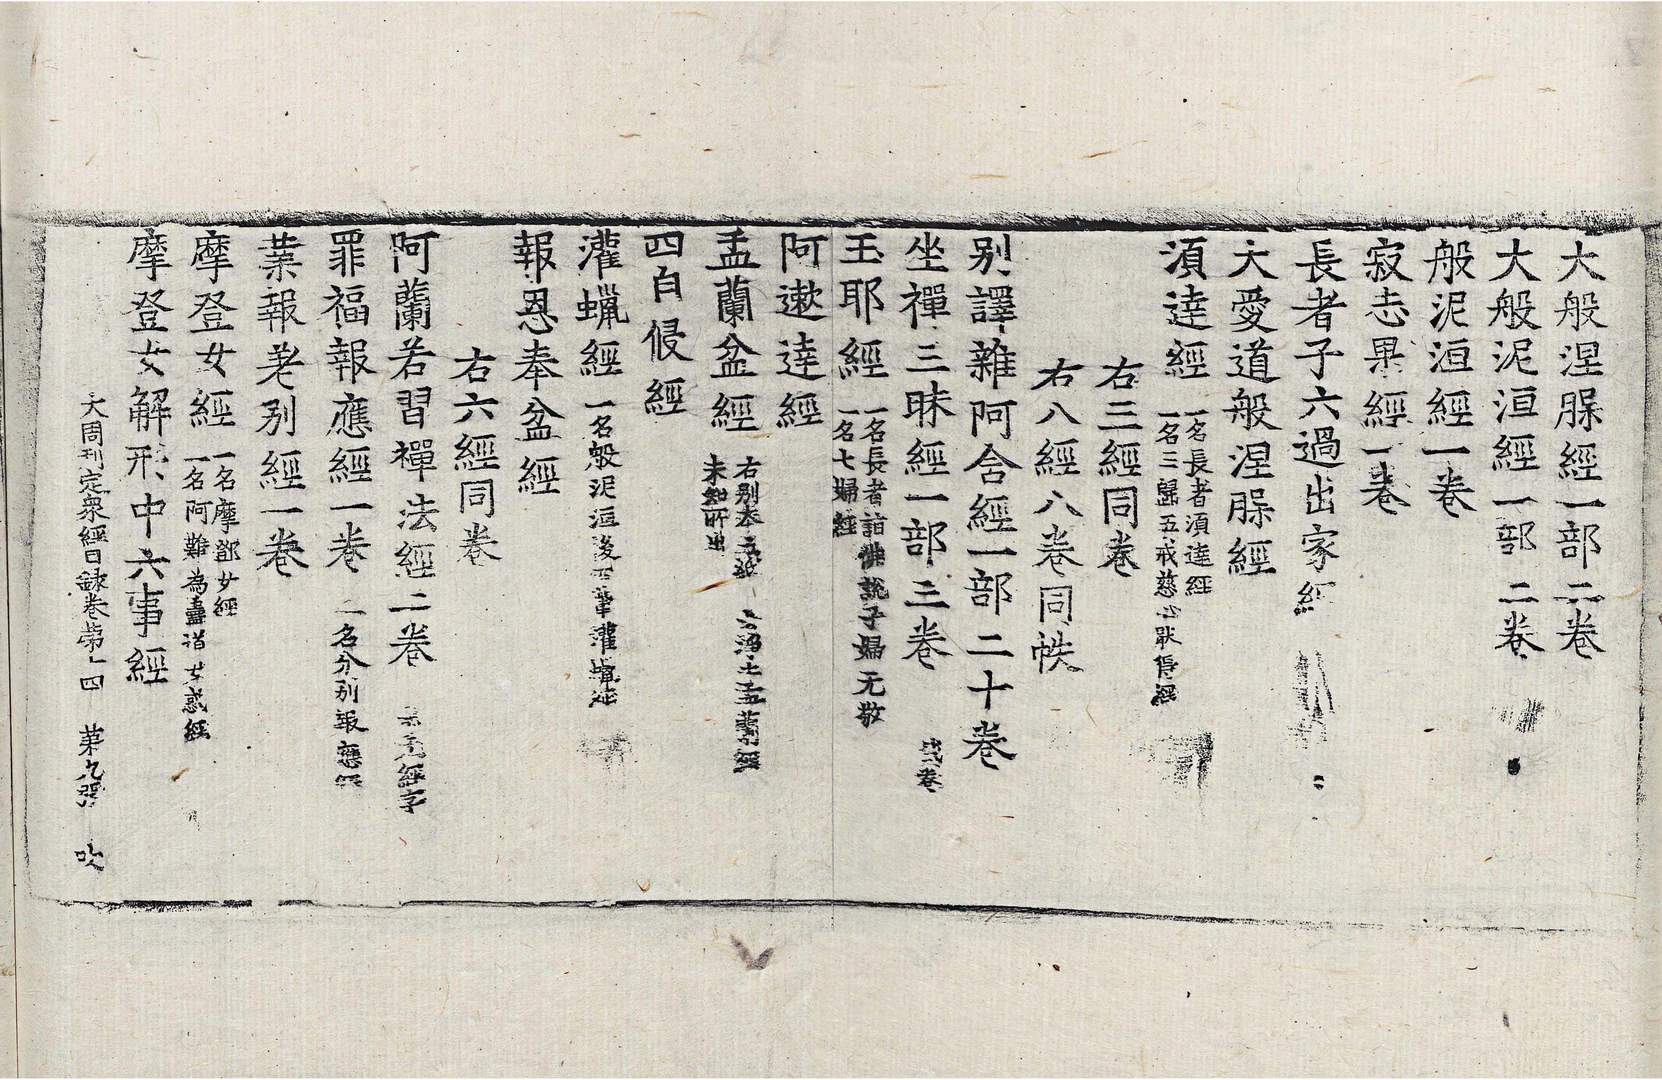 大般涅槃經一部二卷
大般泥洹經一部二卷
般泥洹經一卷
寂志果經一卷
長者子六過出家經
大愛道般涅槃經
須達經
一名長者須達經
一名三歸五戒慈心猒經
右三經同卷
右八經八卷同帙
別譯雜阿含經一部二十卷
坐禪三昧經一部三卷
卷
玉耶經
一名長者詣佛說子婦无敬
一名七婦經
阿遬達經
盂蘭盆經
右別本
未知所出
四自侵經
灌蠟經
一名般泥洹後
報恩奉盆經
右六經同卷
阿蘭若習禪法經二卷
經字
罪福報應經一卷
一名分別報應經
業報差別經一卷
摩登女經
一名摩鄧女經
一名阿難為蠱道女惑經
摩登女解形中六事經
大周刊定衆經目錄卷第十四 第九張